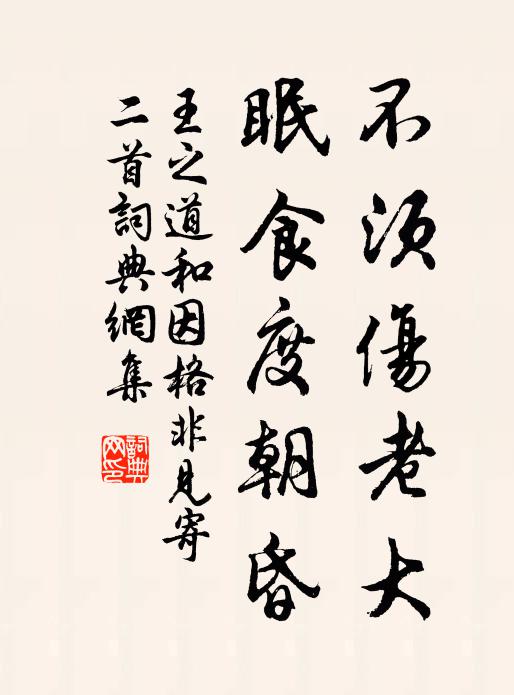 不須傷老大
眠食度朝昏
王之道和因格非見寄
二首詞典網集
詞典网印